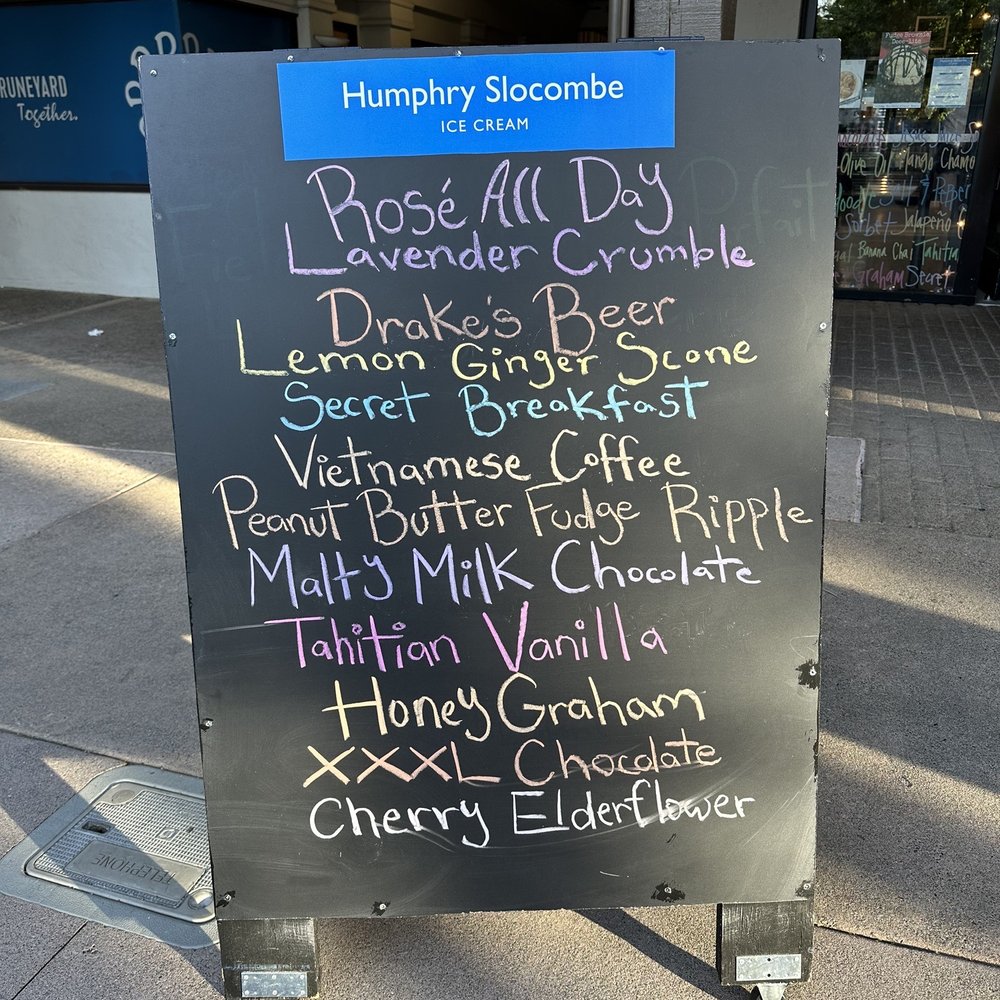 RUNEYARD
Together.
Humphry Slocombe
ICE CREAM
Rosé All Day
Lavender Crumble
Drake's Beer
Lemon Ginger Scone
Secret Breakfast
Vietnamese Coffee
Peanut Butter Fudge Ripple
Malty Milk Chocolate
Tahitian Vanilla
Honey Graham
XXXL Chocolate
Cherry Elderflower
TELEPHONE
Olive Oil Mango Chamo
Sorbet Jalapeño
Banana Chai Tahitia
Graham Secret